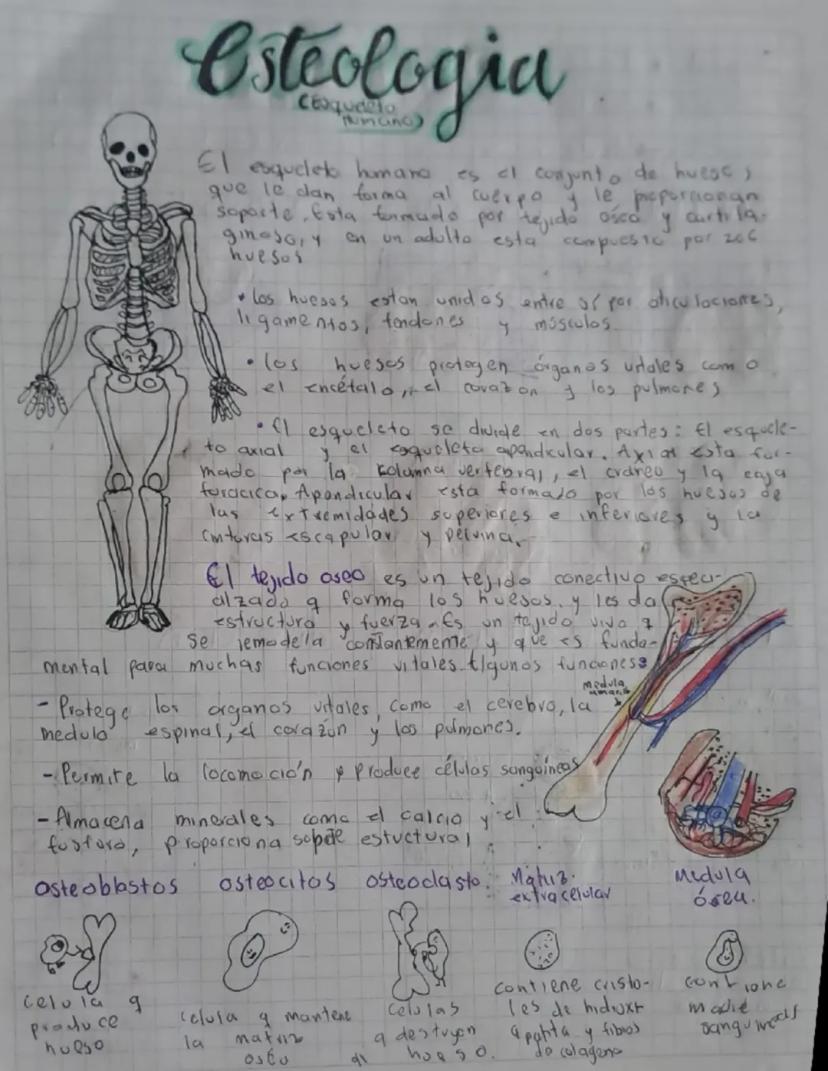 Osteologia
(Esqueleto
Humano)
El esqueleto humano es el conjunto de huesos
que le dan forma al cuerpo y le proporcionan
soporte. Esta formado por tejido óseo y cartila-
ginoso, y en un adulto esta compuesto por 206
huesos
• los huesos estan unidos entre sí por aticulaciones,
ligamentos, tendones y músculos
• los huesos protegen órganos vitales como
el encéfalo, el corazon y los pulmones
• El esqueleto se divide en dos partes: El esquele-
to axial y el esqueleto apendicular. Axial esta for-
mado por la kolumna vertebral, el craneo y la caja
toracica. Apendicular esta formado por los huesos de
las extremidades superiores e inferiores y la
cinturas escapular y pelvina.
El tejido oseo es un tejido conectivo especi-
alzado q forma los huesos, y les da
estructura y fuerza. Es un tejido vivo q
se remodela constantemente y que es funda-
mental para muchas funciones vitales. Algunos funciones:
medula
amarilla
- Protege los organos vitales, como el cerebro, la
medula espinal, el corazón y los pulmones.
- Permite la locomoción y produce células sanguíneas
- Almacena minerales como el calcio y el
fosforo, proporciona soporte estuctural
osteoblastos osteocitos osteoclasto. Matriz
extracelular
Medula
ósea.
celula q
produce
hueso
celula q mantene
la matriz
oseo
celulas
q destuyen
hueso.
contiene crista-
les de hidroxi
apatita y fibras
de colageno
contiene
madre
sanguineas